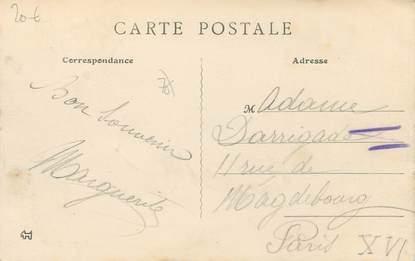 20 €
CARTE POSTALE
Correspondance
Adresse
Bon Souvenir
Marguerite
Madame
Darrigade
11 rue de
Magdebourg
Paris XVI